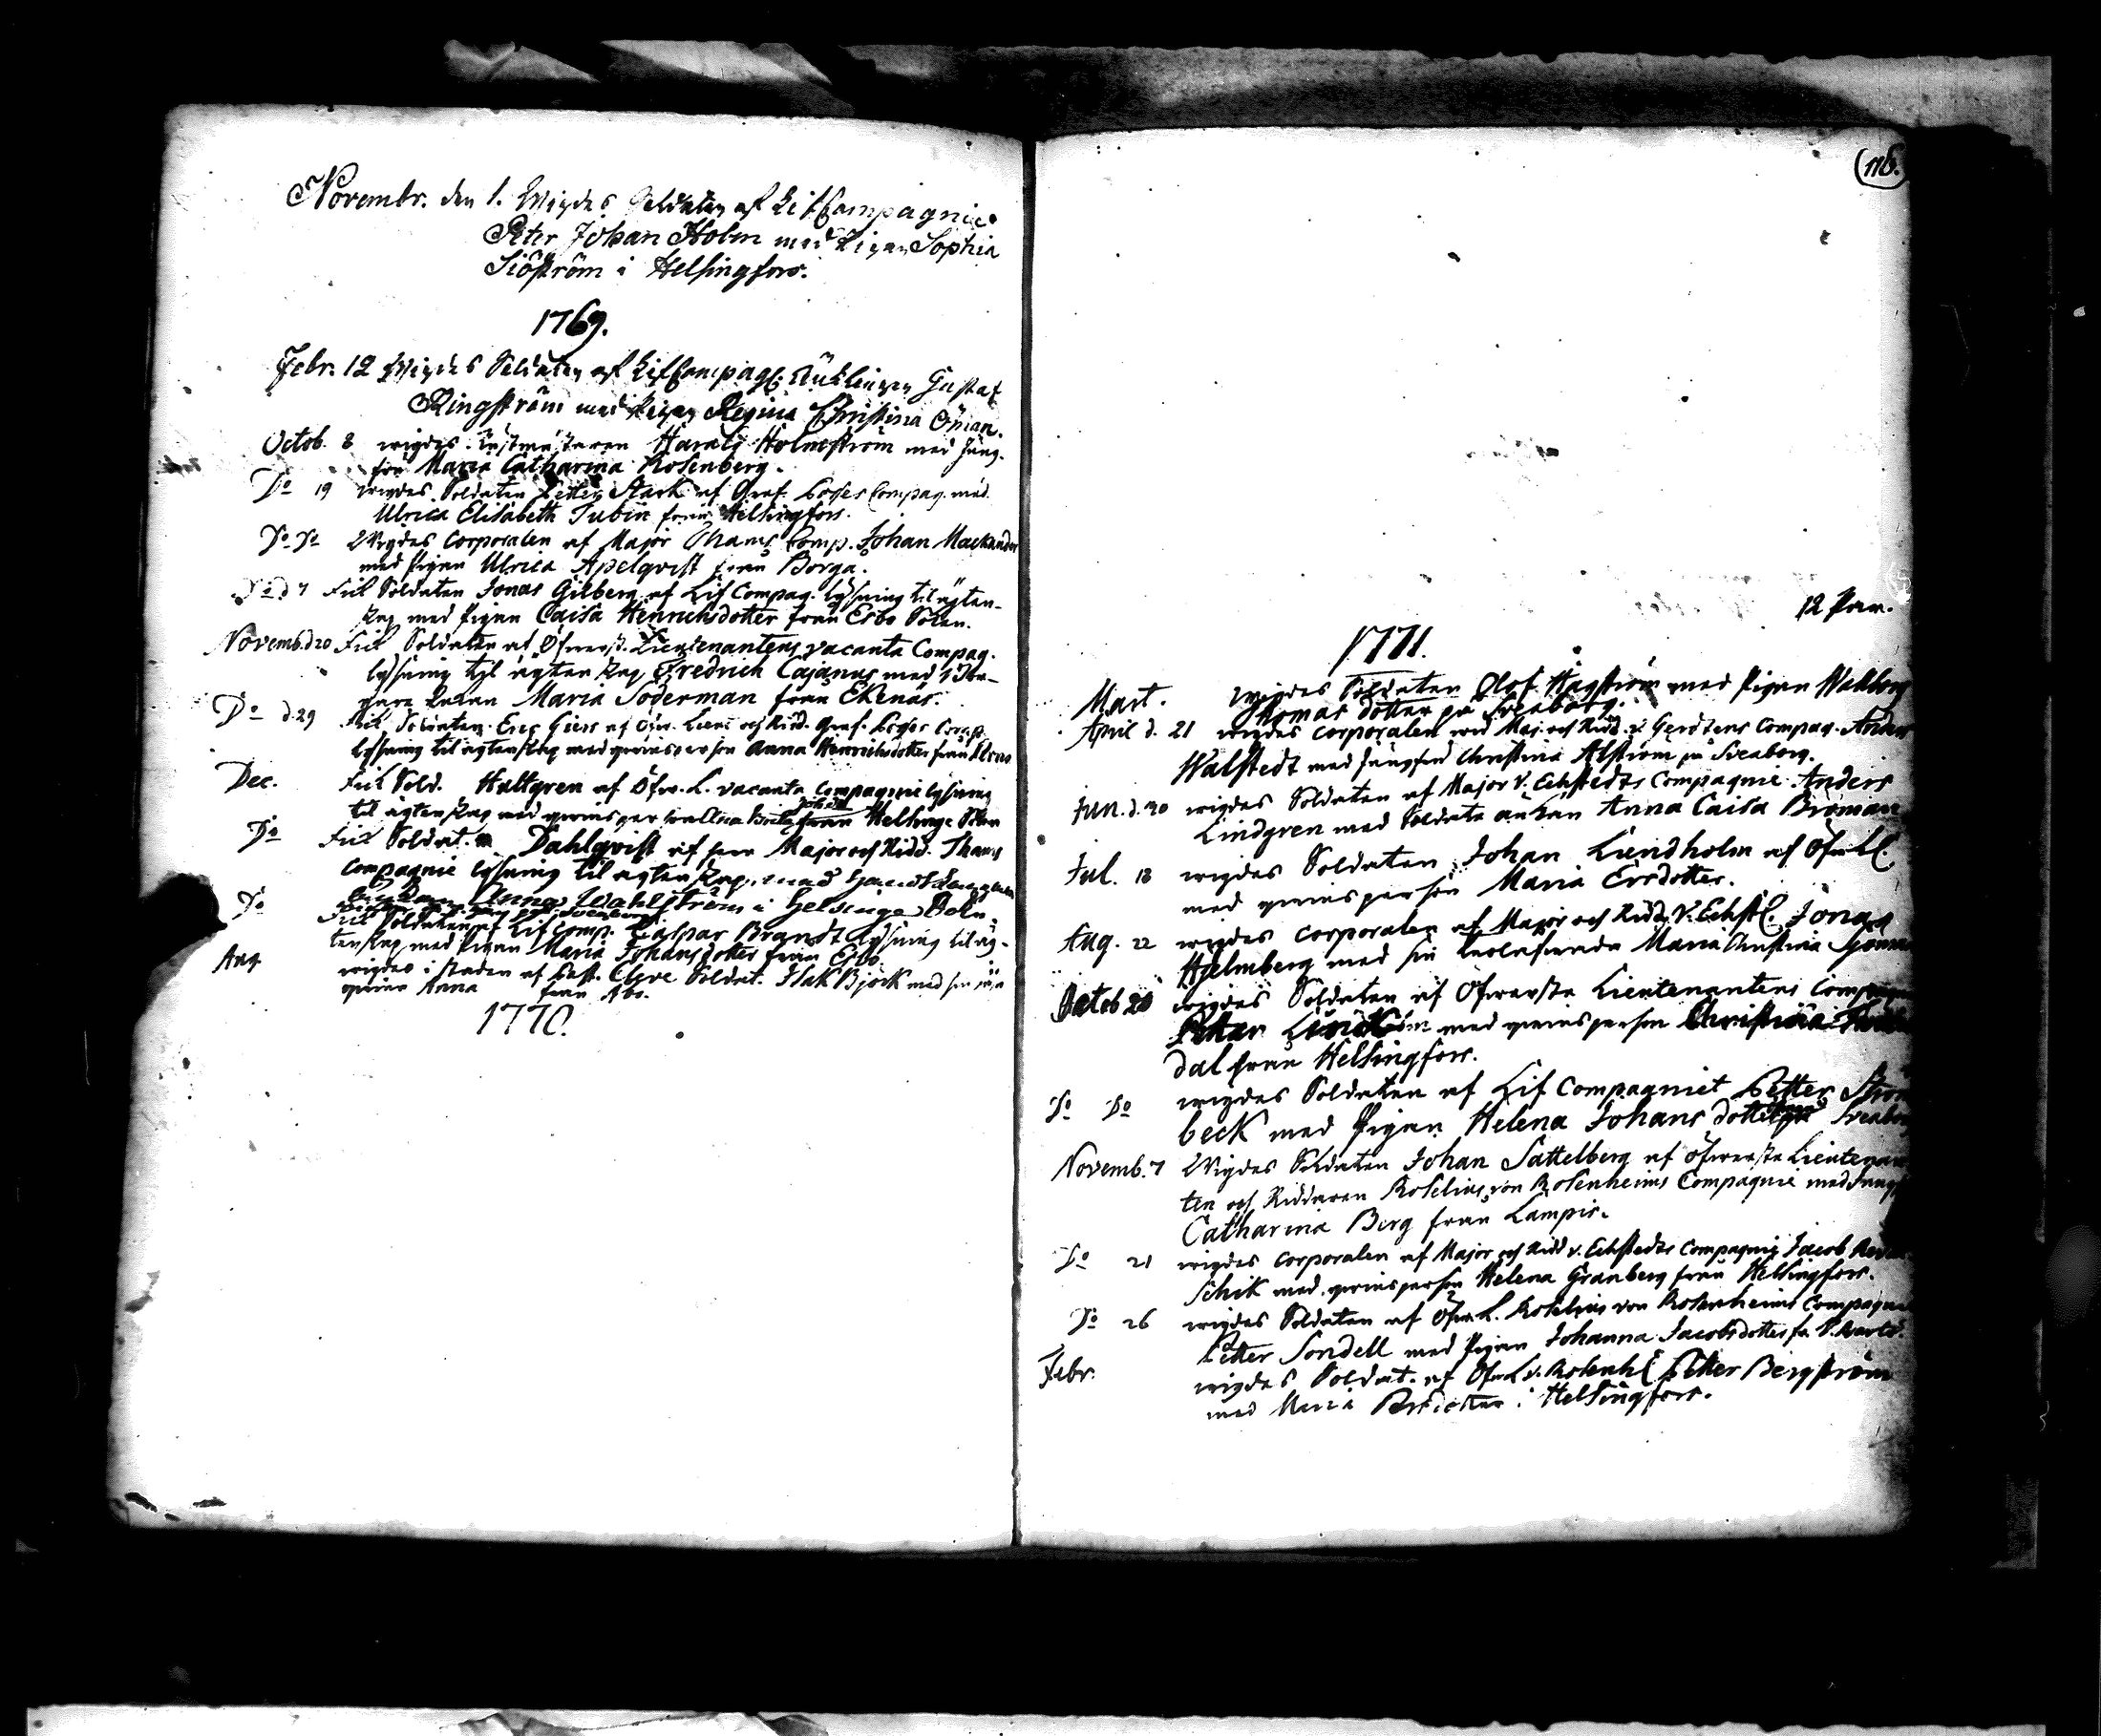 Novembr. den 1. Wigdes Soldaten af Lif Compagnie
Peter Johan Holm med Pigan Sophia
Siöström i Helsingfors.
1769.
Febr. 12 Wigdes Soldaten af Lif Compag: Änklingen Gustaf
Ringström med Pigan Regina Christina Öman.
Octob. 8 wigdes Rustmästaren Holmström med Jung-
fru Maria Catharina Rosenberg.
Do 19 wigdes Soldaten Petter Stark af Gref. Compag. med
Ulrica Elisabeth Tubin från Helsingfors.
Do Do Wigdes Corporalen af Major Thams Comp. Johan
med Pigan Ulrica Apelqvist från Borga.
Do d 7 Fick Soldaten Jonas Gilberg af Lif Compag. lysning til ägten-
skap med Pigan Caisa Henrichsdotter från Esbo Soken.
Novemb. d 20 Fick Soldaten af Öfwerst. Lieutenantens vacanta Compag.
lysning til ägtenskap Fredrich Cajanus med
Maria Söderman från Ekenäs.
Do d. 29 Fick Soldaten Eric af Öfw. Lieut och Ridd. Gref. Comp.
lysning til ägtenskap med qwinsperson Anna Henrichsdotter från
Dec. Fick Sold. Hultgren af Öfw. L. vacanta Compagnie lysning
til ägtenskap med qwinsperson Brita från Helsinge Sokn
Do Fick Soldat. Dahlqvist af herr Major och Ridd. Thams
Compagnie lysning til ägtenskap, med
Enkan Anna Wahlström i Helsinge Sokn.
Do Fick Soldaten af Lif Comp. Caspar Brandt lysning til äg-
tenskap med Pigan Maria Johansdotter från Esbo.
Aug. wigdes i staden af Past. Cleve Soldat. Isak Björk med sin
qwinna Anna från Abo.
1770.
118.
12 Par.
1771.
Mart. wigdes Soldaten Olof Hagström med Pigan Walborg
Thomas dotter på Sveaborg.
April d. 21 wigdes corporalen wid Maj. och Ridd. v. Gerdtens Compag. Anders
Walstedt med Jungfru Christina Alström på Sveaborg.
Jun. d. 30 wigdes Soldaten af Major v. Echstedts Compagnie Anders
Lindgren med Soldate änkan Anna Caisa Broman
Jul. 18 wigdes Soldaten Johan Lundholm af Öfw L.
med qwinsperson Maria Ersdotter.
Aug. 22 wigdes corporalen af Major och Ridd. v. Echst. Jonas
Hjelmberg med sin Maria Christina
Octob 20 wigdes Soldaten af Öfwersta Lieutenantens Compagnie
Petter med qwinsperson Christina
dal från Helsingfors.
Do Do wigdes Soldaten af Lif Compagniet Petter Ström
beck med Pigan Helena Johans dotter på Sveaborg
Novemb. 7 Wigdes Soldaten Johan Sattelberg af öfwersta Lieutenan
ten och Riddaren Roselius von Rosenheims Compagnie med Jungf
Catharina Berg från Lampis.
Do 21 wigdes corporalen af Major och Ridd v. Echstedts Compagnie Jacob
Schik med qwinsperson Helena Granberg från Helsingfors.
Do 26 wigdes Soldaten af Öfw. L. Roselius von Rosenheims Compagnie
Petter Sondell med Pigan Johanna Jacobsdotter fr.
Febr. wigdes Soldat. af Öfw L v. Rosenh. Petter Bergström
med Maria i Helsingfors.